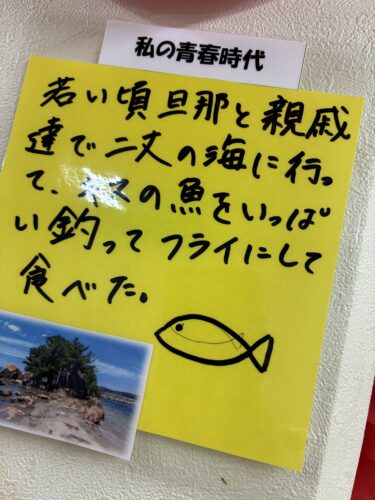 私の青春時代
若い頃旦那と親戚
達で二丈の海に行っ
て、キスの魚をいっぱ
い釣ってフライにして
食べた。